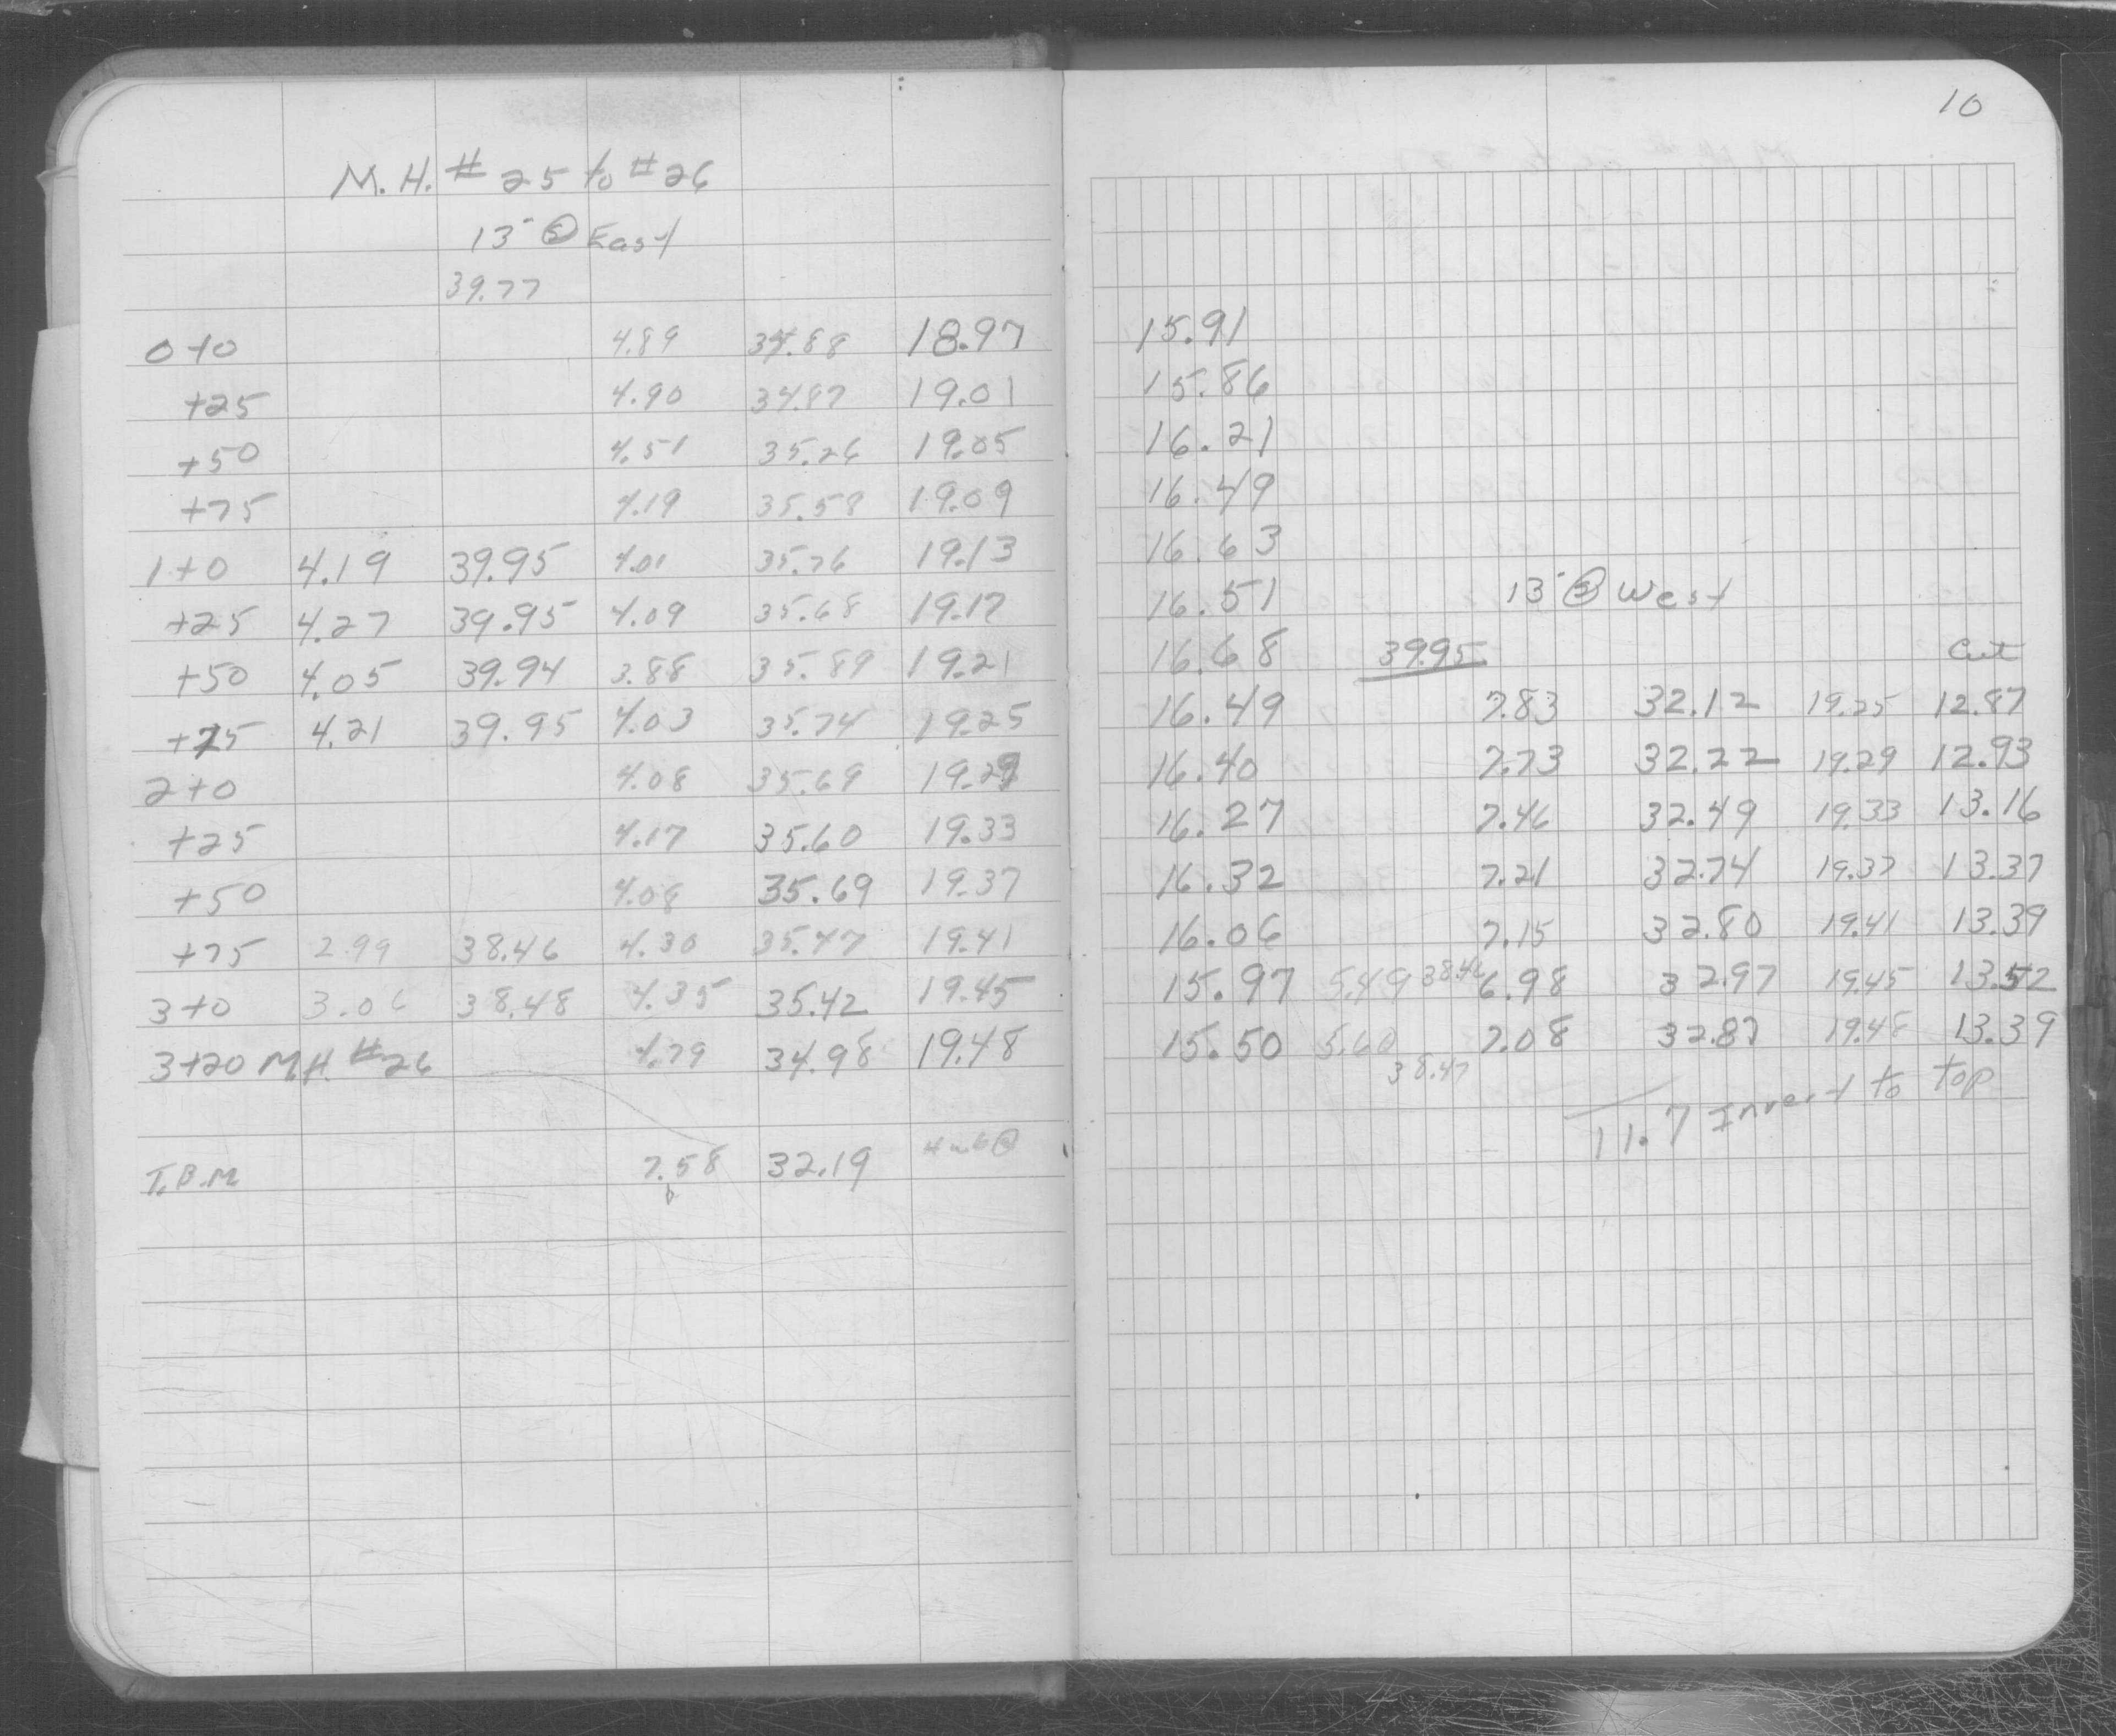 10
M.H. # 25 to # 26
13' East
39.77
0+0 4.89 34.88 18.97 15.91
+25 4.90 34.87 19.01 15.86
+50 4.51 35.26 19.05 16.21
+75 4.19 35.58 19.09 16.49
1+0 4.19 39.95 4.01 35.76 19.13 16.63
+25 4.27 39.95 4.09 35.68 19.17 16.51 13' West
+50 4.05 39.94 3.88 35.89 19.21 16.68 39.95 Cut
+75 4.21 39.95 4.03 35.74 19.25 16.49 7.83 32.12 19.25 12.87
2+0 4.08 35.69 19.29 16.40 7.73 32.22 19.29 12.93
+25 4.17 35.60 19.33 16.27 7.46 32.49 19.33 13.16
+50 4.08 35.69 19.37 16.32 7.21 32.74 19.37 13.37
+75 2.99 38.46 4.30 35.47 19.41 16.06 7.15 32.80 19.41 13.39
3+0 3.06 38.48 4.35 35.42 19.45 15.97 5.49 38.46 6.98 32.97 19.45 13.52
3+20 M.H. #26 4.79 34.98 19.48 15.50 5.60 7.08 32.87 19.48 13.39
38.47
11.7 Invert to top
T.B.M 7.58 32.19 Hub